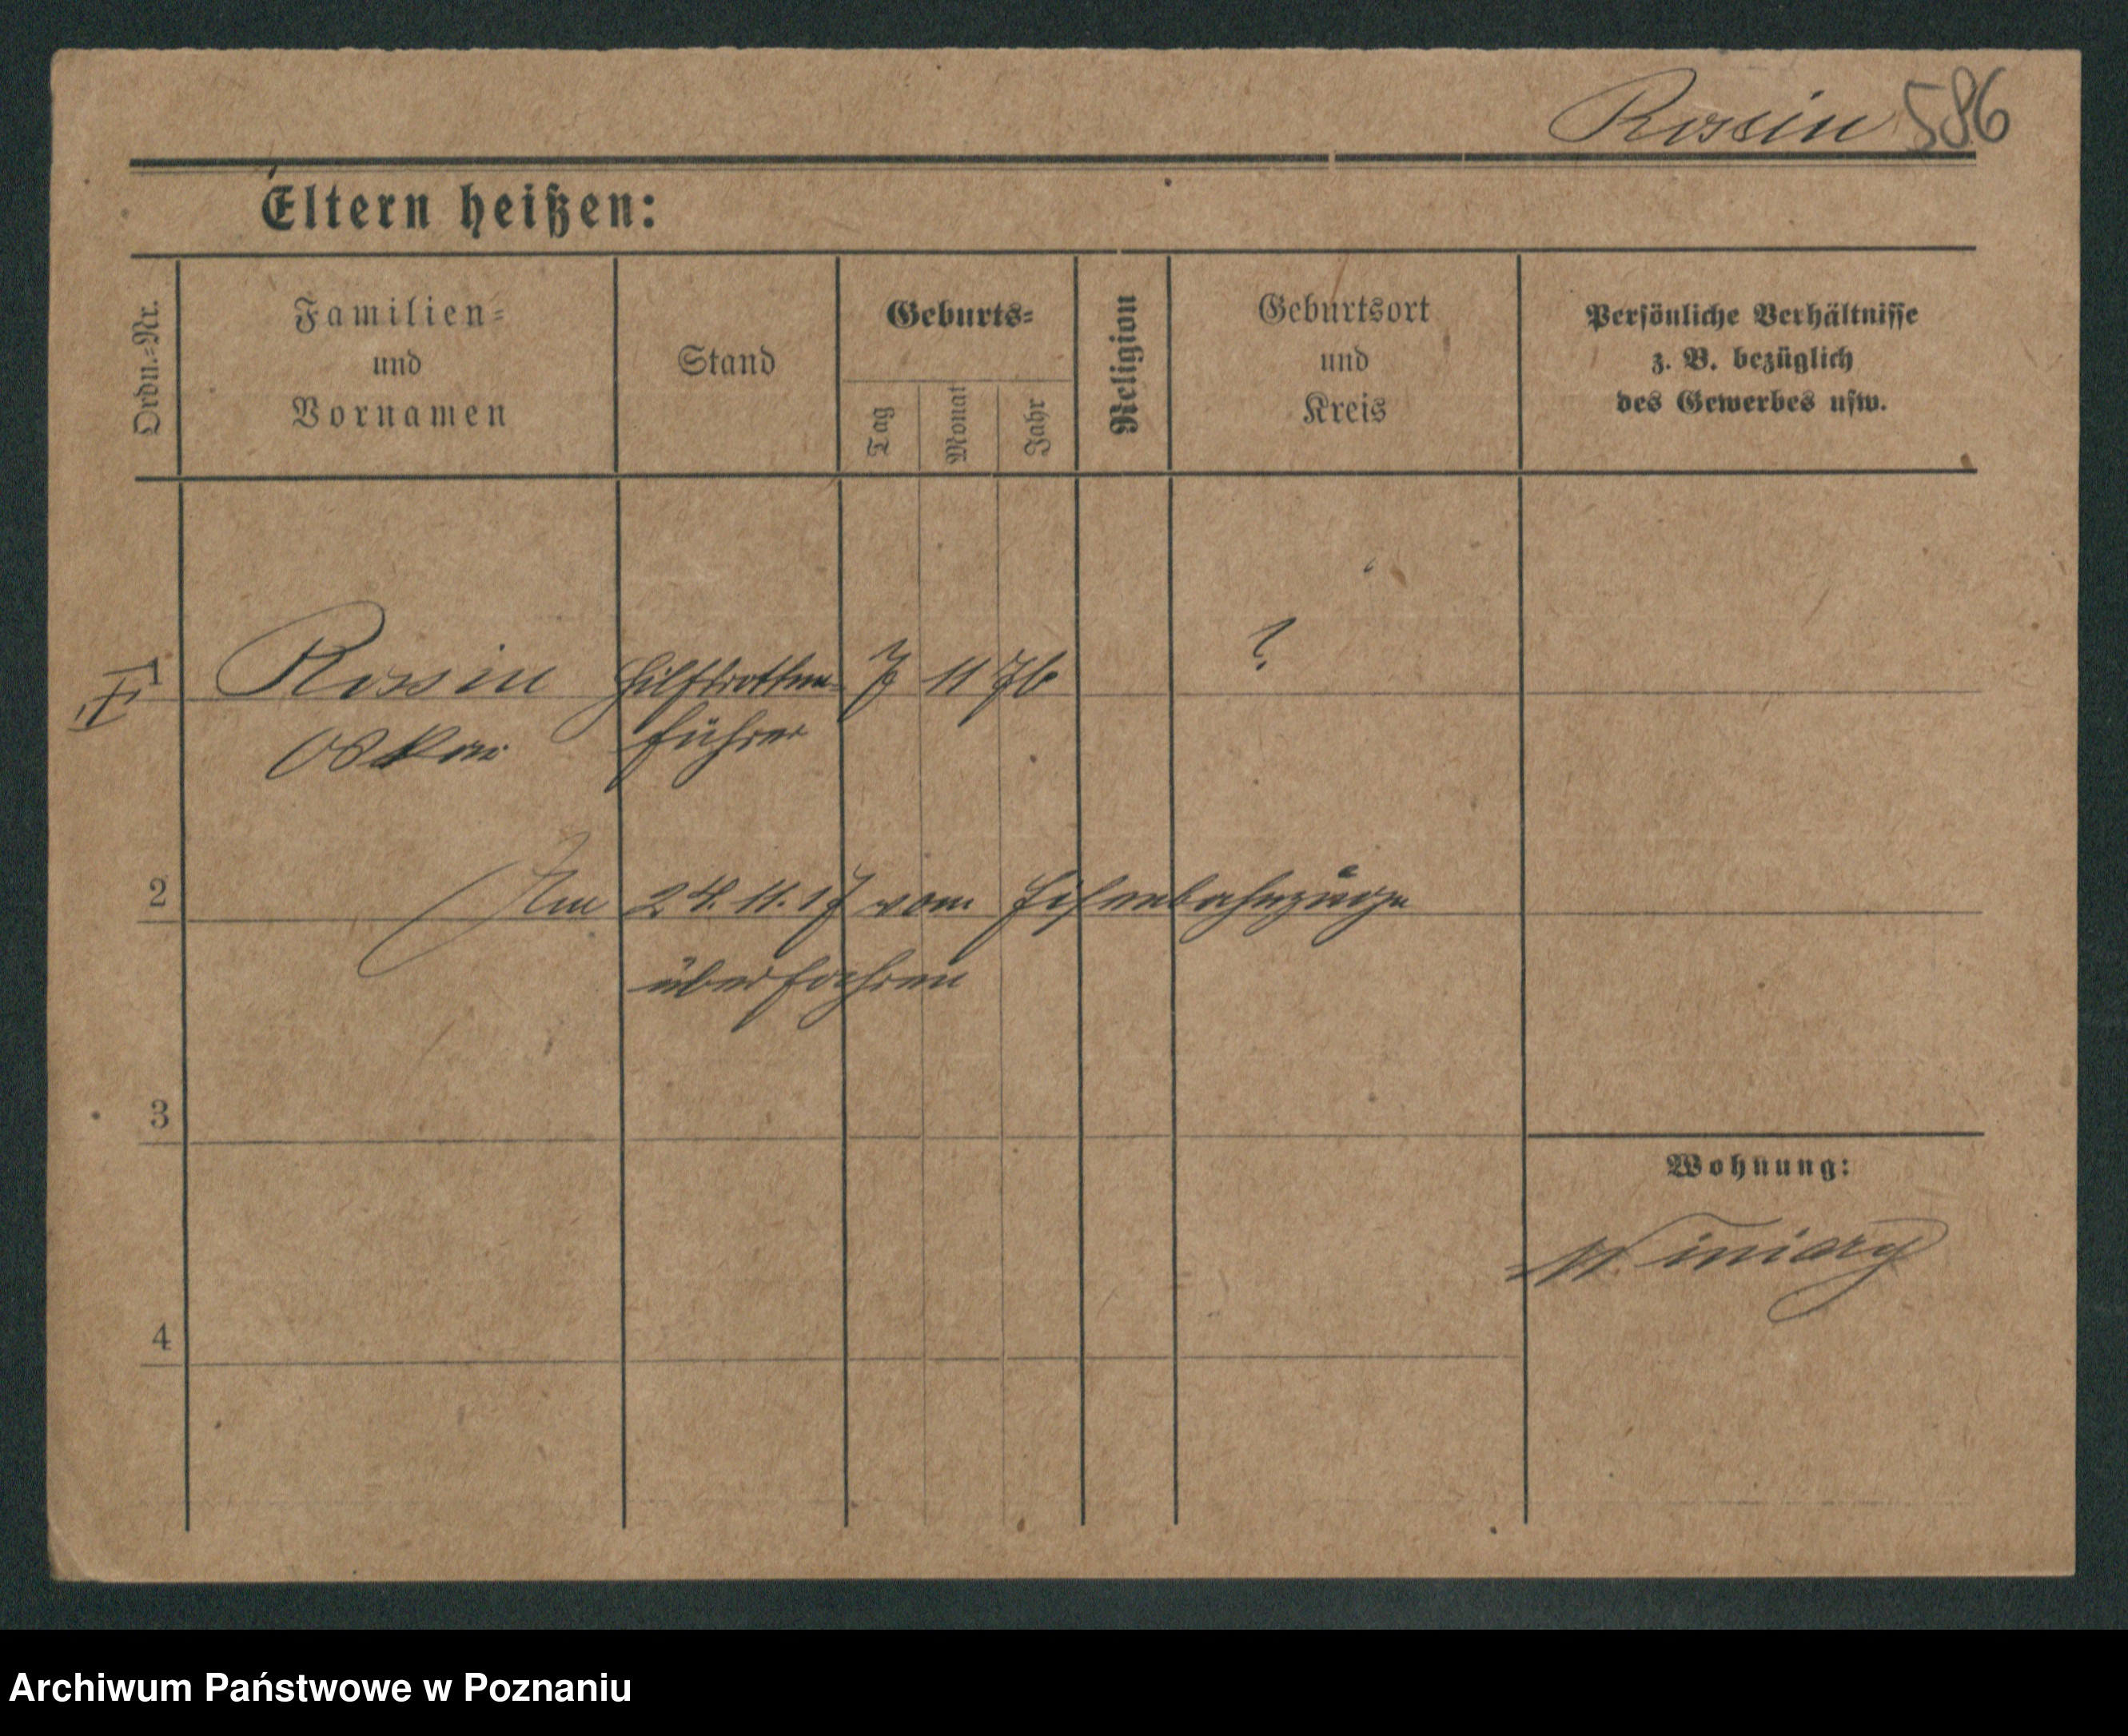 Rossin 586
Eltern heißen:
Ordn.-Nr.
Familien-
und
Vornamen
Stand
Geburts-
Tag
Monat
Jahr
Religion
Geburtsort
und
Kreis
Persönliche Verhältnisse
z. B. bezüglich
des Gewerbes usw.
1 Rossin Hilfsrotten- 7 11 76 ?
Oskar führer
2 Am 24.11.17 vom Eisenbahnzuge
überfahren
3
Wohnung:
Winiary
4
Archiwum Państwowe w Poznaniu